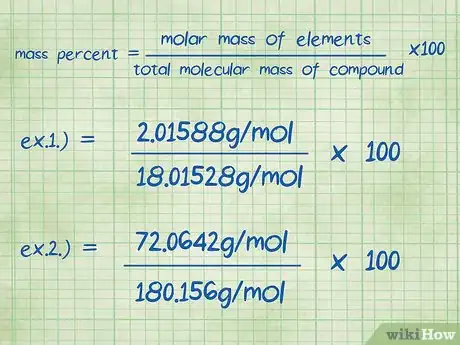 mass percent = molar mass of elements / total molecular mass of compound x100
ex.1.) = 2.01588g/mol / 18.01528g/mol x 100
ex.2.) = 72.0642g/mol / 180.156g/mol x 100
wikiHow